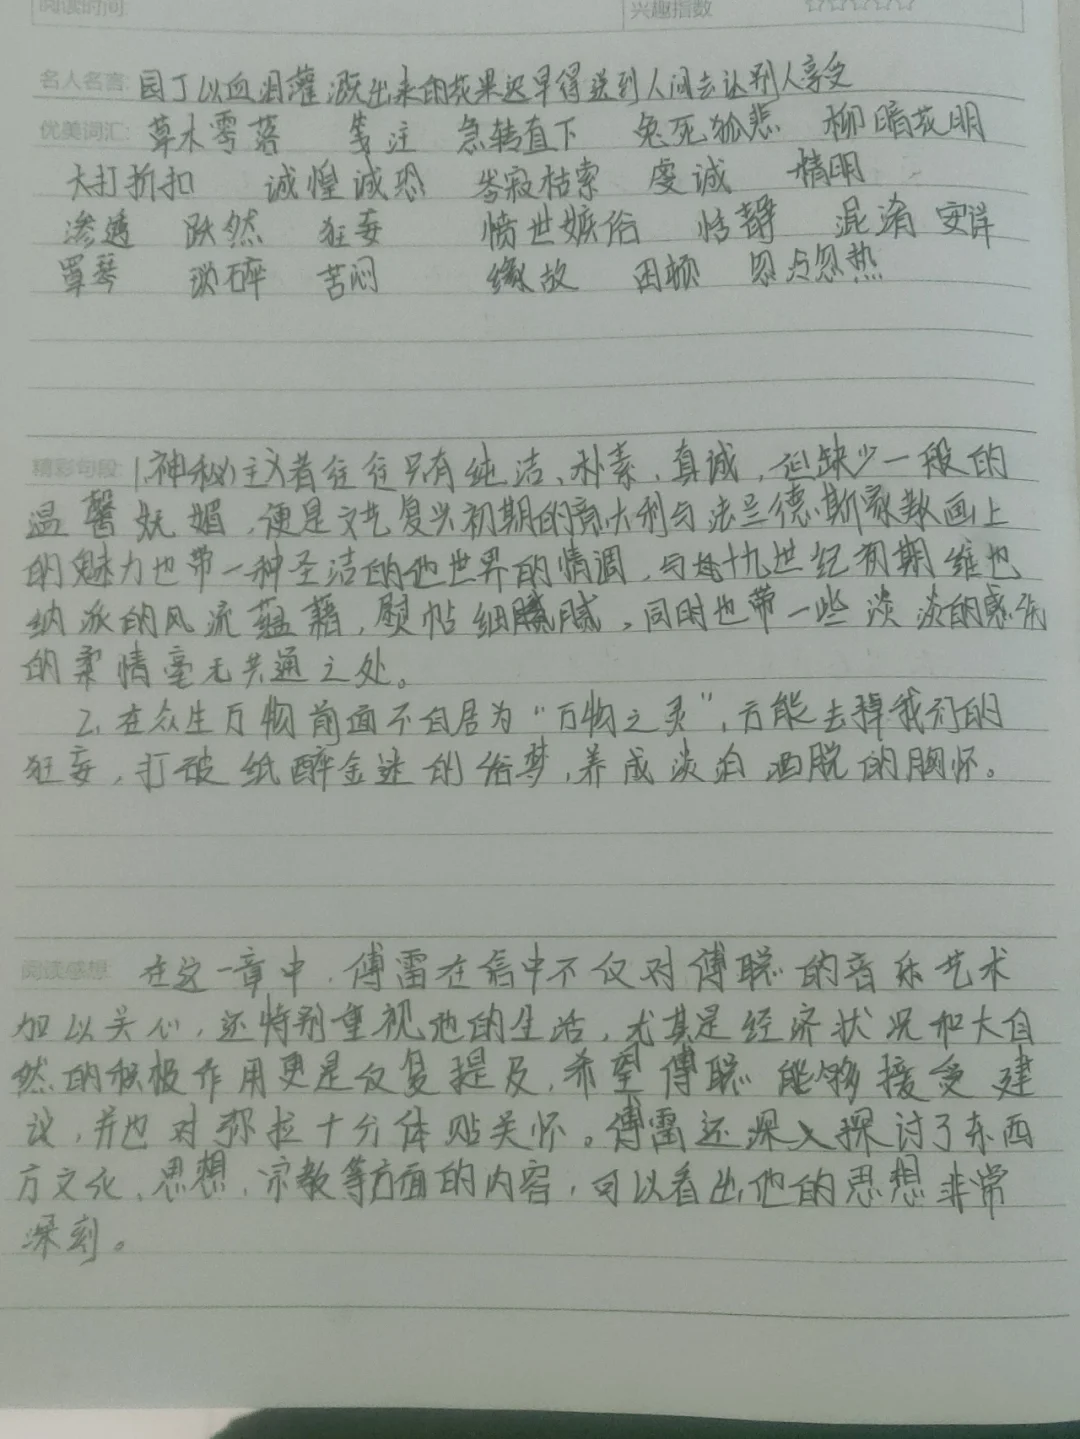 阅读时间 兴趣指数 ☆☆☆☆☆
名人名言: 园丁以血泪灌溉出来的花果迟早得送到人间去让别人享受
优美词汇: 草木零落 笺注 急转直下 兔死狐悲 柳暗花明
大打折扣 诚惶诚恐 岑寂枯索 虔诚 精明
渗透 跃然 狂妄 愤世嫉俗 恬静 混淆 安详
弹琴 琐碎 苦闷 缘故 困顿 忽冷忽热
精彩句段: 1.神秘主义者往往只有纯洁、朴素、真诚,但缺少一般的
温馨妩媚,便是文艺复兴初期的意大利与法兰德斯宗教画上
的魅力也带一种圣洁的他世界的情调,与十九世纪初期维也
纳派的风流蕴藉,熨帖细腻,同时也带一些淡淡的感伤
的柔情毫无共通之处。
2.在众生万物前面不自居为“万物之灵”,方能去掉我们的
狂妄,打破纸醉金迷的俗梦,养成淡泊洒脱的胸怀。
阅读感想: 在这一章中,傅雷在信中不仅对傅聪的音乐艺术
加以关心,还特别重视他的生活,尤其是经济状况和大自
然的积极作用更是反复提及,希望傅聪能够接受建
议,并也对弥拉十分体贴关怀。傅雷还深入探讨了东西
方文化、思想、宗教等方面的内容,可以看出他的思想非常
深刻。